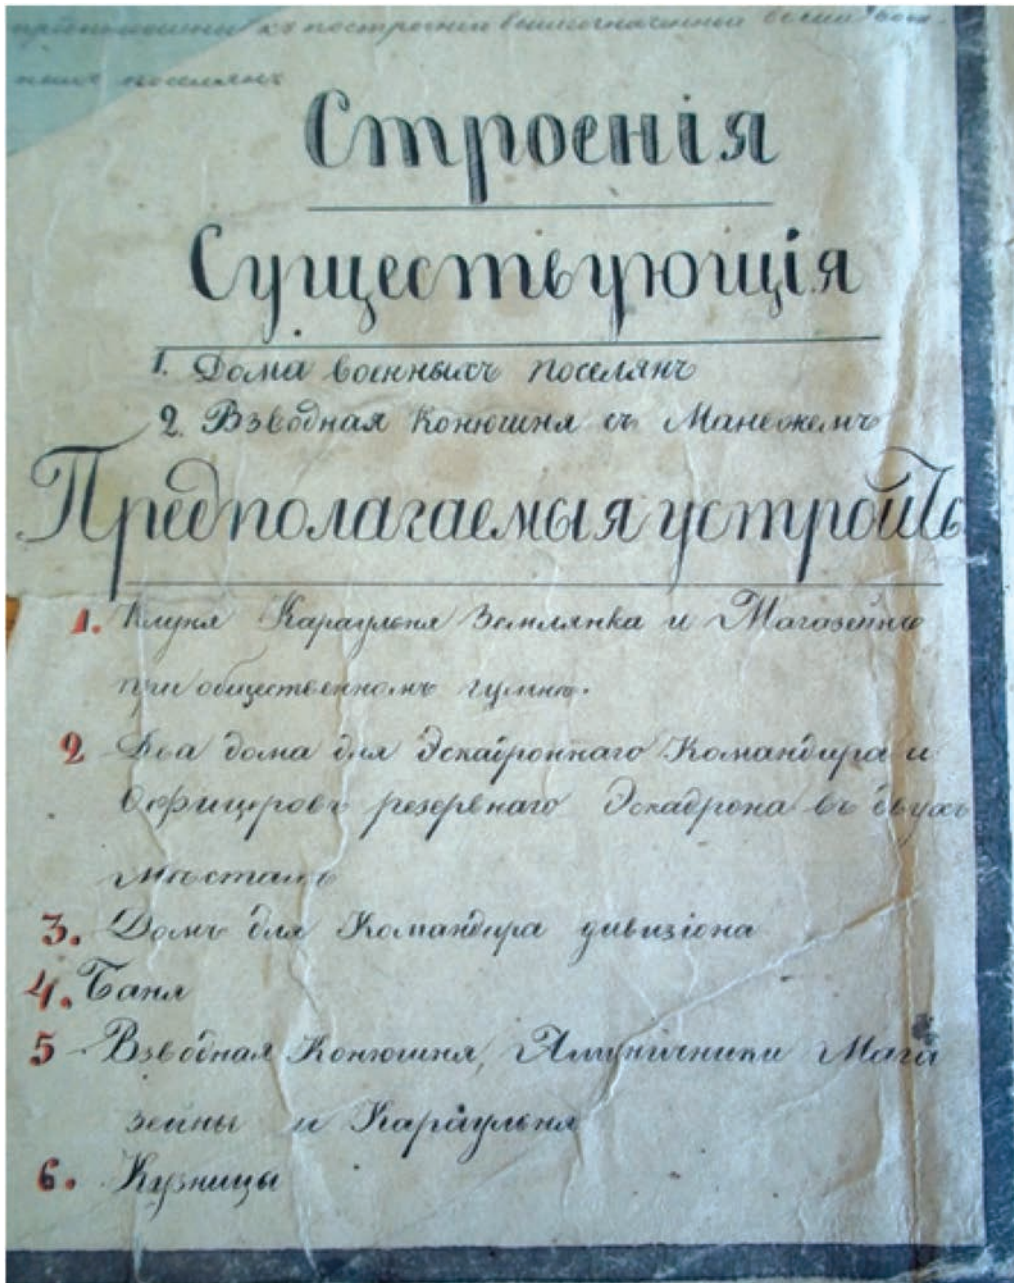 къ построенію вышеозначенныхъ
ныхъ поселянъ
Строенія
Существующія
1. Дома военныхъ поселянъ
2. Взводная Конюшня съ Манежемъ
Предполагаемыя устроить
1. Клуня Караульня Землянка и Магазейнъ
при общественномъ гумнѣ.
2 Два дома для Эскадроннаго Командира и
Офицеровъ резервнаго Эскадрона въ двухъ
мѣстахъ
3. Домъ для Командира дивизіона
4. Баня
5 Взводная Конюшня, Амуничники Мага
зейны и Караульня
6. Кузницы